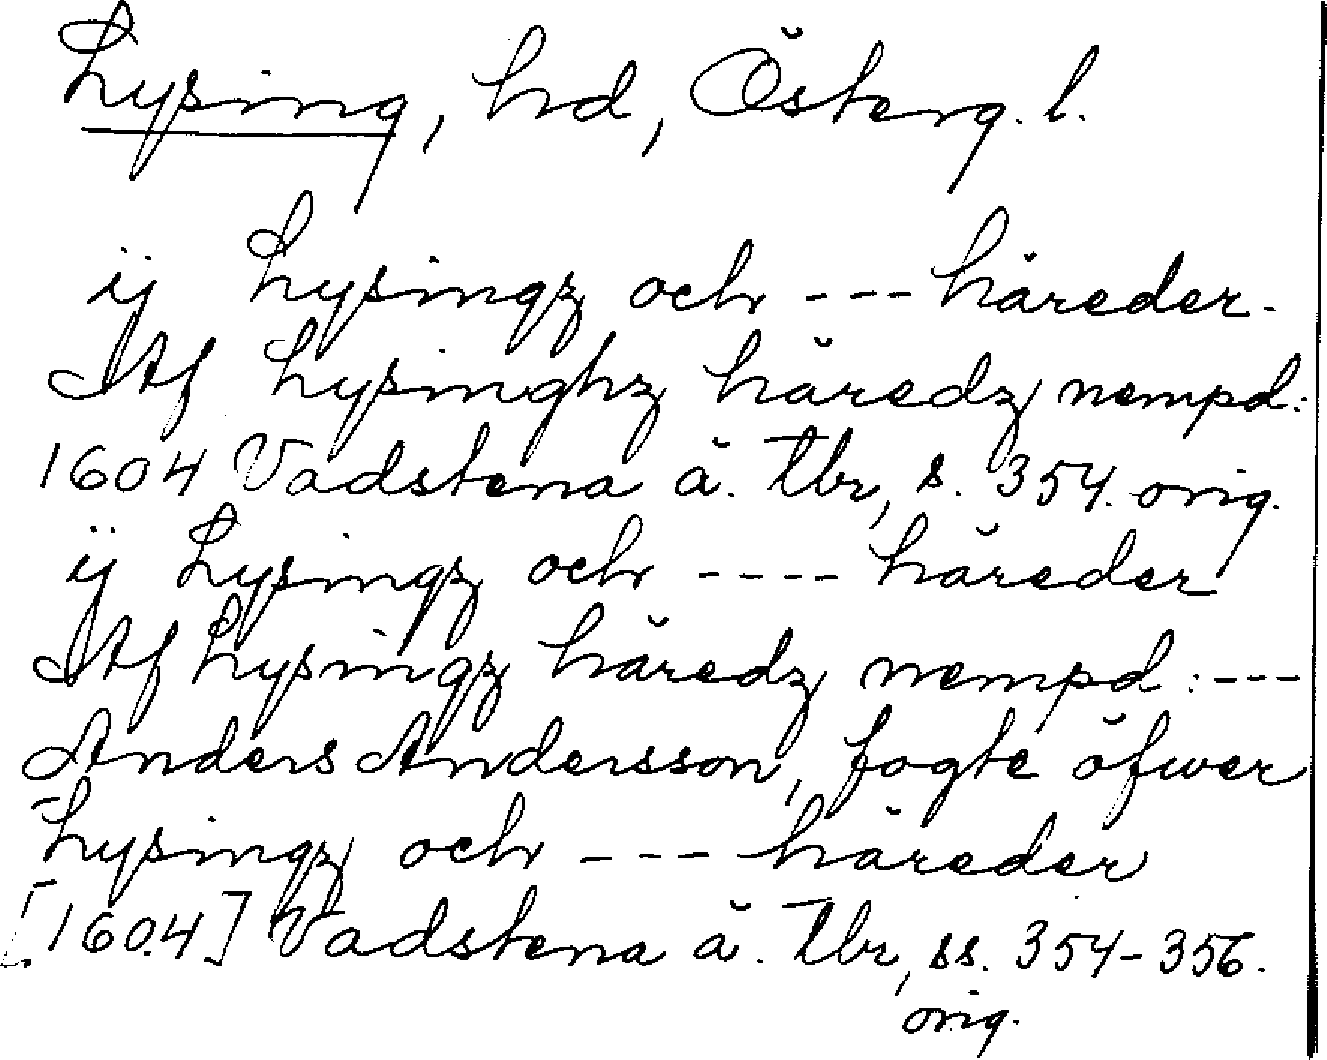 Lysing, hd, Österg. l.
ij Lysingz och --- häreder.
Af Lysinghz häredz nempd:
1604 Vadstena ä. tbr, s. 354. orig.
ij Lysingz och ---- häreder
Af Lysingz häredz nempd: ---
Anders Andersson, fogte öfwer
Lysingz och --- häreder
[1604] Vadstena ä. tbr, ss. 354-356.
orig.